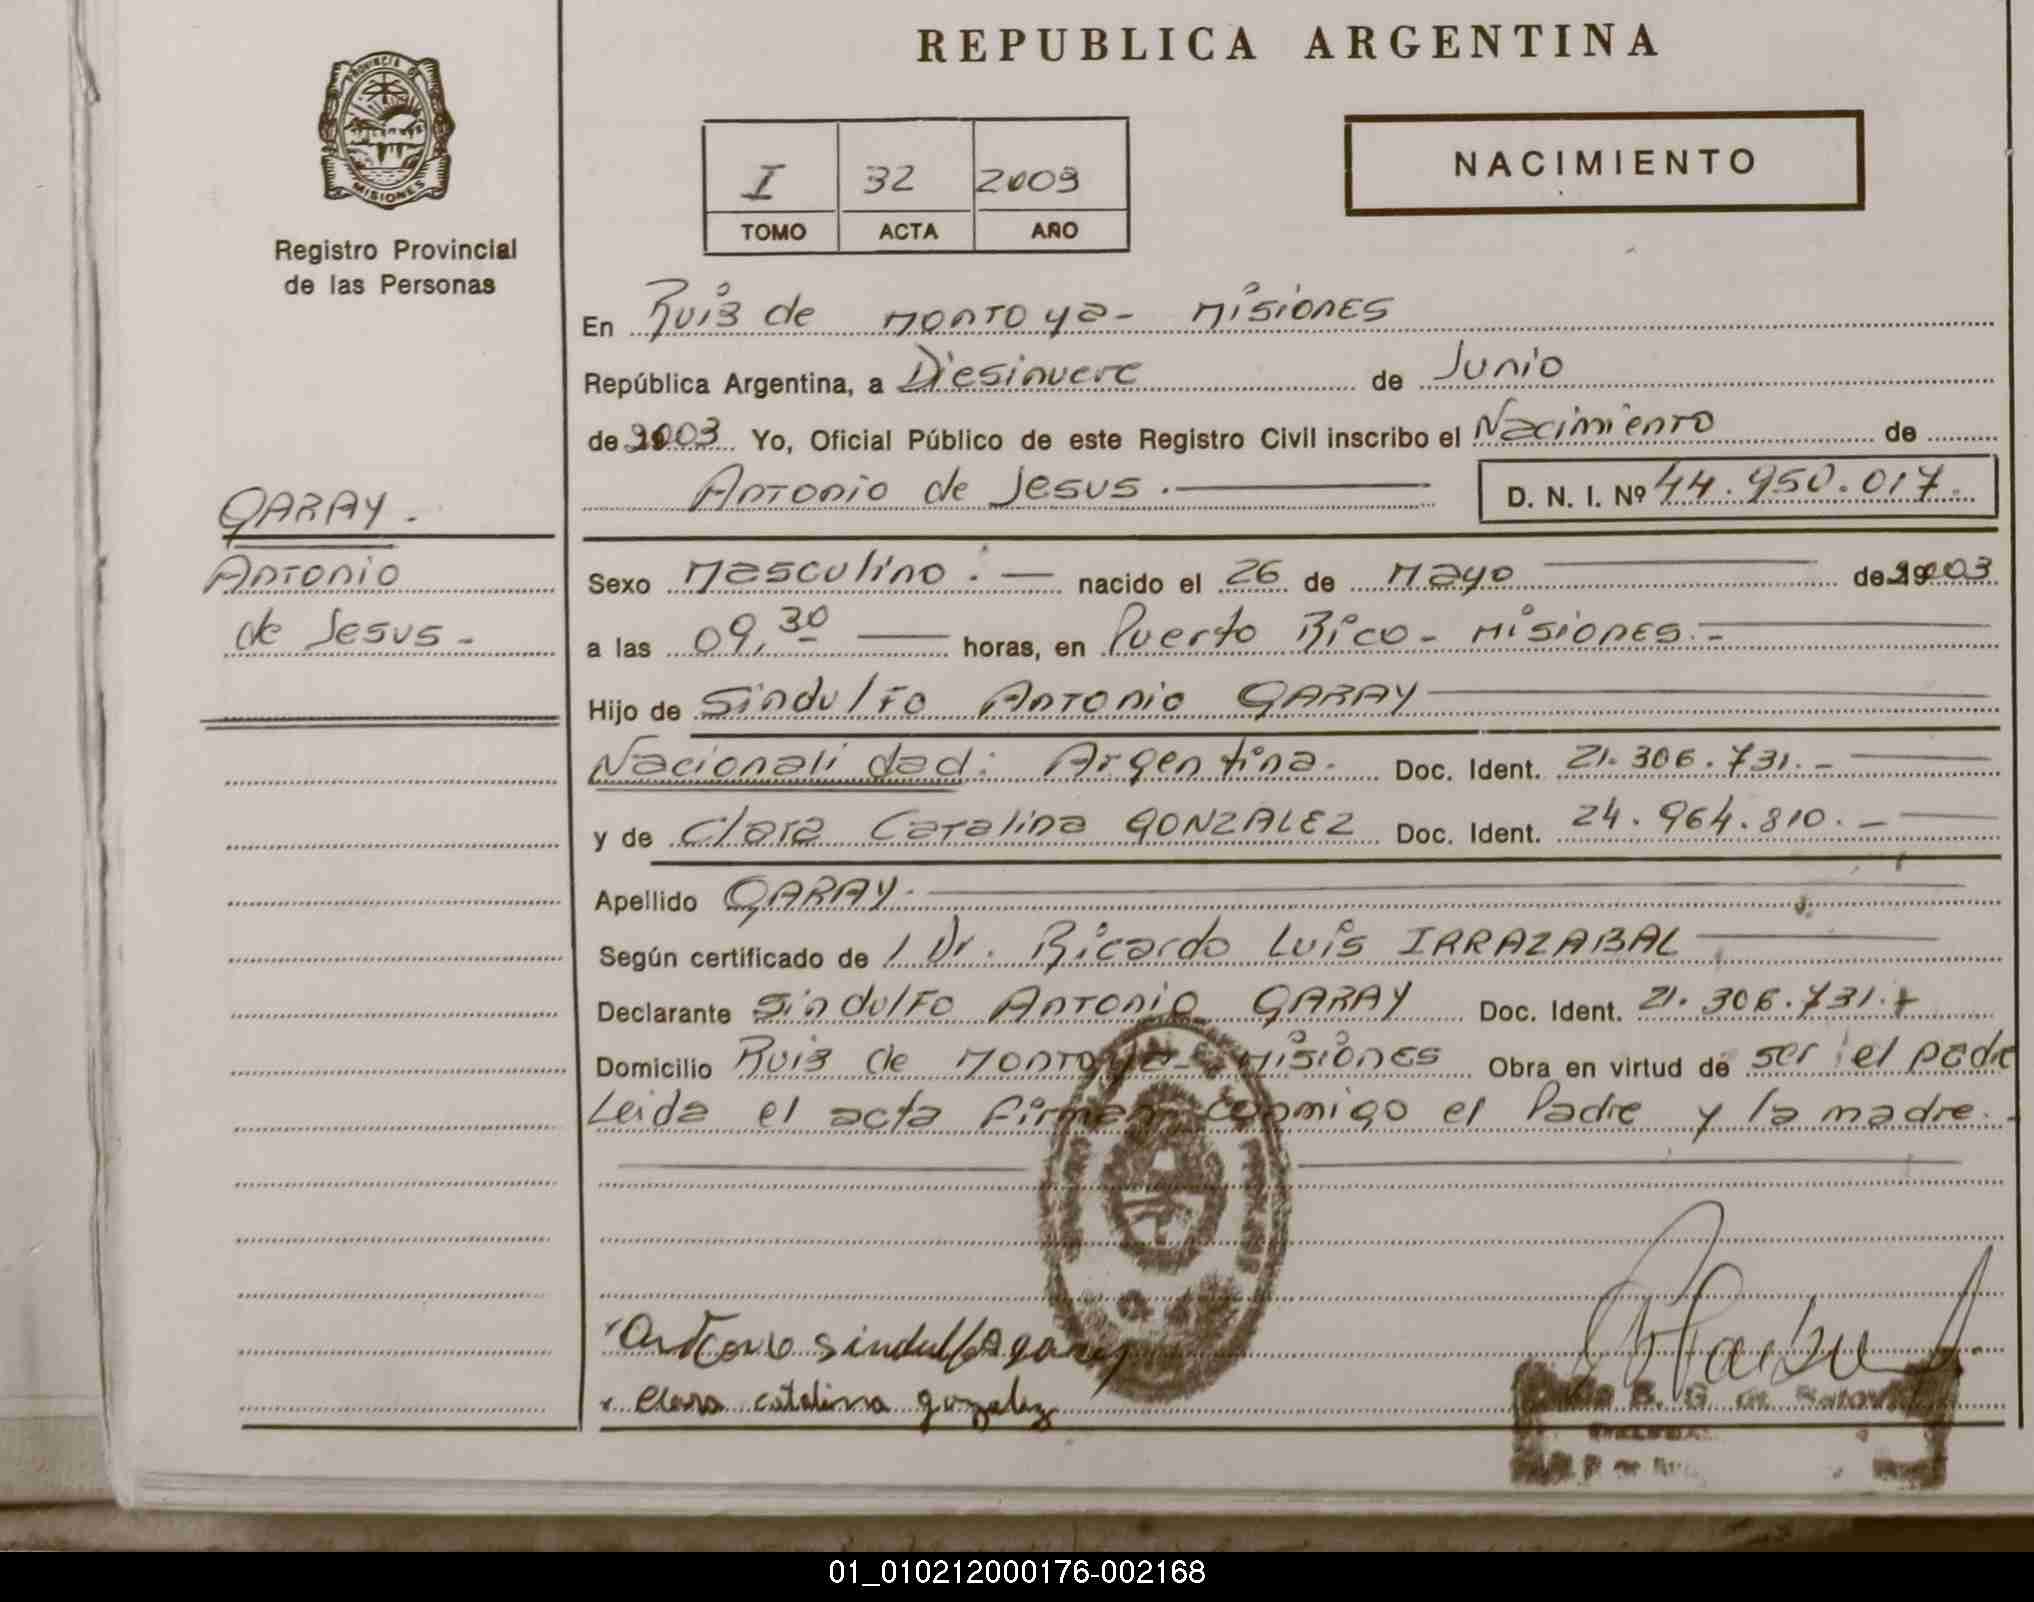 REPUBLICA ARGENTINA
PROVINCIA DE
MISIONES
Registro Provincial
de las Personas
I 32 2003
TOMO ACTA AÑO
NACIMIENTO
En Ruiz de Montoya- Misiones
República Argentina, a Diesinueve de Junio
de 2003 Yo, Oficial Público de este Registro Civil inscribo el Nacimiento de
Antonio de Jesus. D. N. I. Nº 44.950.017.
GARAY.
Antonio
de Jesus-
Sexo Masculino. nacido el 26 de Mayo de 2003
a las 09,30 horas, en Puerto Rico- Misiones.-
Hijo de Sindulfo Antonio GARAY
Nacionalidad: Argentina. Doc. Ident. 21.306.731.-
y de Clara Catalina GONZALEZ Doc. Ident. 24.964.810.-
Apellido GARAY.
Según certificado de Dr. Ricardo Luis IRRAZABAL
Declarante Sindulfo Antonio GARAY Doc. Ident. 21.306.731.
Domicilio Ruiz de Montoya- Misiones Obra en virtud de ser el padre
Leida el acta firman conmigo el Padre y la madre.-
Antonio sindulfo garay
clara catalina gonzalez
01_010212000176-002168